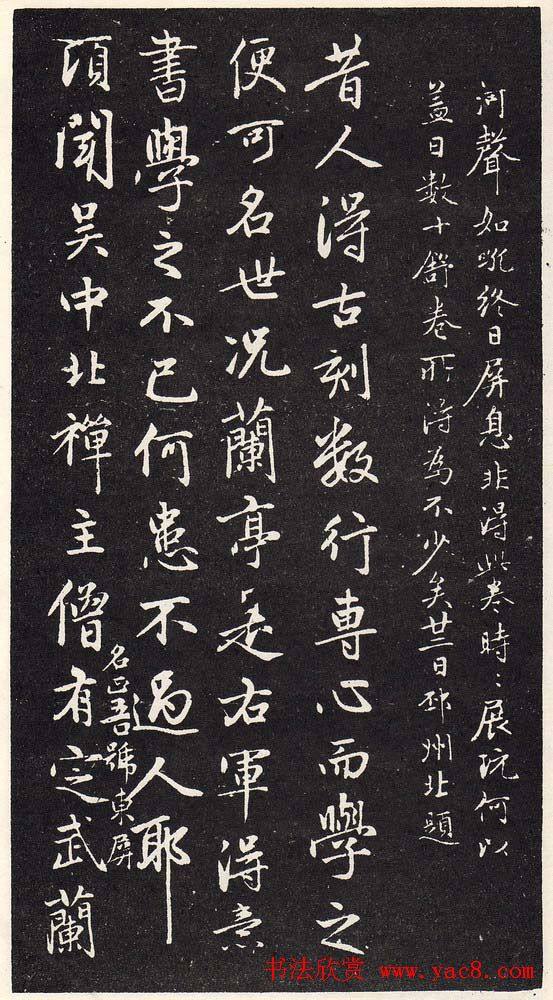 河聲如吼終日屏息非得此卷時〻展玩何以
蓋日數十舒卷所得為不少矣廿二日邳州北題
昔人得古刻數行專心而學之
便可名世况蘭亭是右軍得意
書學之不已何患不過人耶
頃聞吳中北禪主僧有定武蘭
名正吾號東屏
书法欣赏 www.yac8.com